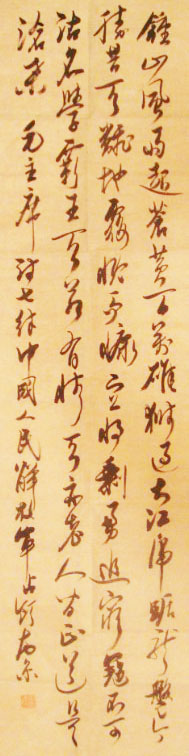 鍾山風雨起蒼黄百萬雄獅過大江虎踞龍盤今
勝昔天翻地覆慨而慷宜將剩勇追窮寇不可
沽名學霸王天若有情天亦老人间正道是
滄桑 毛主席詩七律中國人民解放軍占領南京